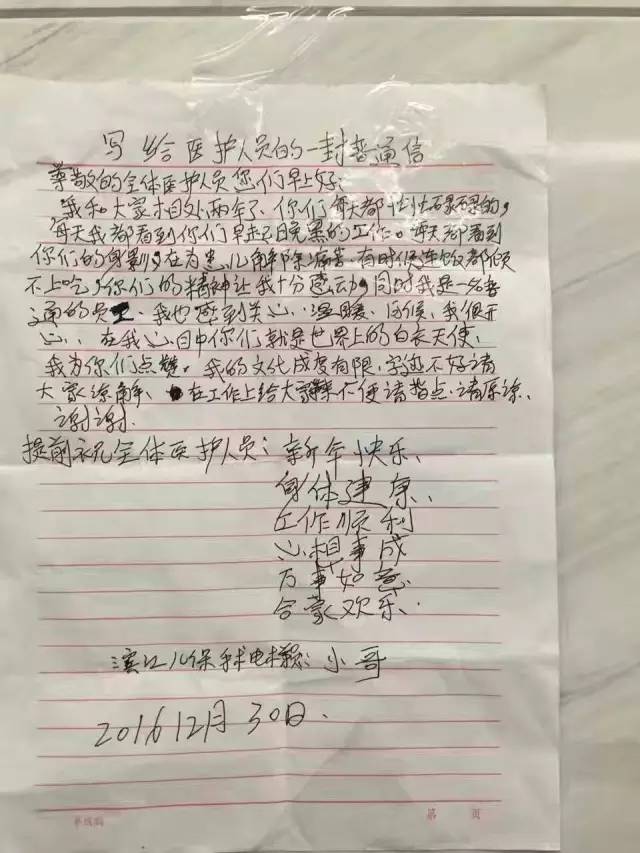 写给医护人员的一封普通信
尊敬的全体医护人员您们早上好:
我和大家相处两年了、你们每天都忙忙碌碌的,
每天我都看到你们早起晚黑的工作。每天都看到
你们的身影在为患儿解除病害、有时候连饭都顾
不上吃,你们的精神让我十分感动,同时我是一名普
通的员工、我也感到关心、温暖、问候、我很开
心、在我心目中你们就是世界上的白衣天使、
我为你们点赞。我的文化成度有限、字迹不好请
大家谅解、在工作上给大家带来不便请指点、请原谅、
谢谢.
提前祝全体医护人员:新年快乐、
身体建康、
工作顺利
心想事成
万事如意
合家欢乐.
滨江儿保手术电梯:小哥
2016 12月30日.
第 页